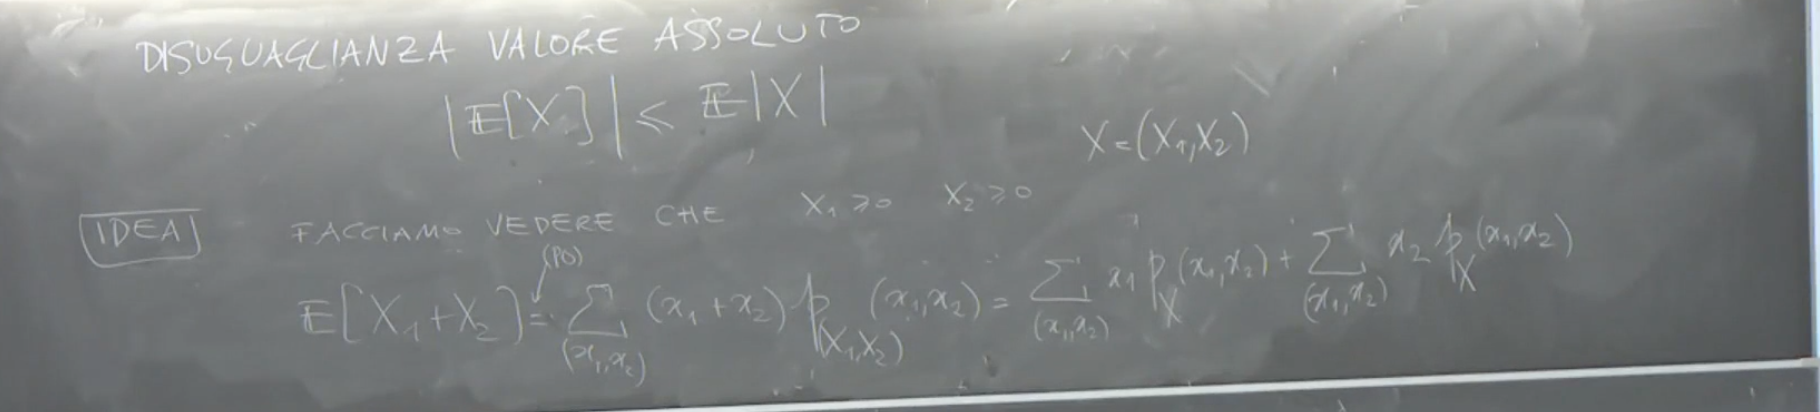 DISUGUAGLIANZA VALORE ASSOLUTO
|𝔼[X]| ⩽ 𝔼|X|
X=(X₁,X₂)
IDEA FACCIAMO VEDERE CHE X₁ ⩾0 X₂ ⩾0
(PO)
𝔼[X₁+X₂] = ∑_(x₁,x₂) (x₁+x₂) p_(X₁,X₂) (x₁,x₂) = ∑_(x₁,x₂) x₁ p_X (x₁,x₂) + ∑_(x₁,x₂) x₂ p_X (x₁,x₂)